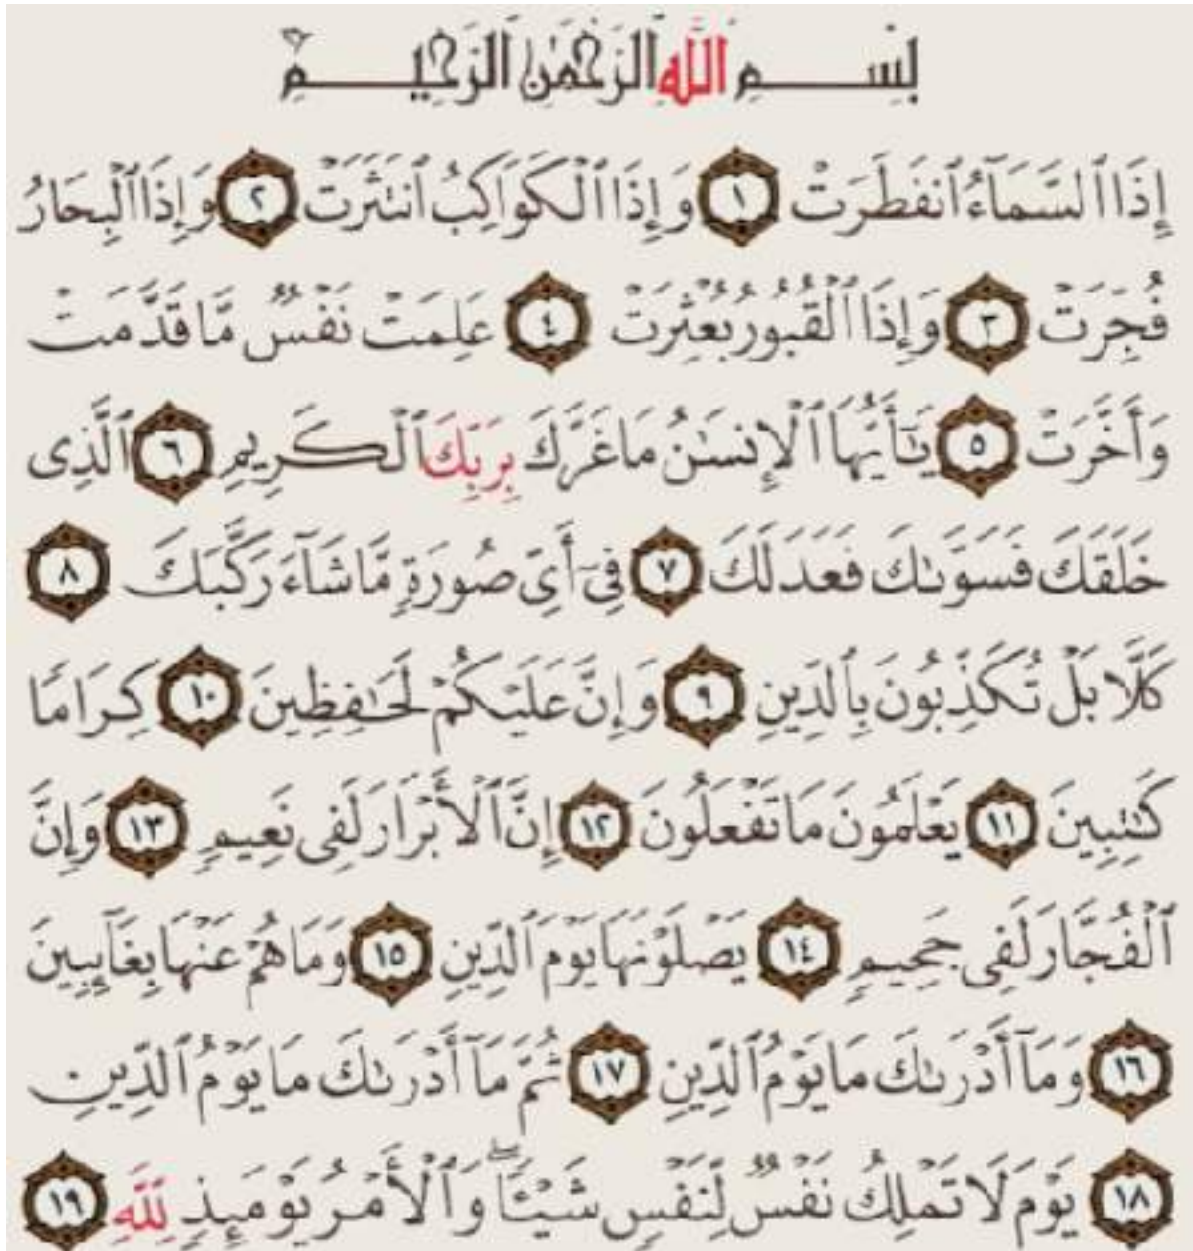 بِسْمِ اللَّهِ الرَّحْمَٰنِ الرَّحِيمِ
إِذَا ٱلسَّمَآءُ ٱنفَطَرَتْ ١ وَإِذَا ٱلْكَوَاكِبُ ٱنتَثَرَتْ ٢ وَإِذَا ٱلْبِحَارُ
فُجِّرَتْ ٣ وَإِذَا ٱلْقُبُورُ بُعْثِرَتْ ٤ عَلِمَتْ نَفْسٌ مَّا قَدَّمَتْ
وَأَخَّرَتْ ٥ يَٰٓأَيُّهَا ٱلْإِنسَٰنُ مَا غَرَّكَ بِرَبِّكَ ٱلْكَرِيمِ ٦ ٱلَّذِى
خَلَقَكَ فَسَوَّىٰكَ فَعَدَلَكَ ٧ فِىٓ أَىِّ صُورَةٍ مَّا شَآءَ رَكَّبَكَ ٨
كَلَّا بَلْ تُكَذِّبُونَ بِٱلدِّينِ ٩ وَإِنَّ عَلَيْكُمْ لَحَٰفِظِينَ ١٠ كِرَامًا
كَٰتِبِينَ ١١ يَعْلَمُونَ مَا تَفْعَلُونَ ١٢ إِنَّ ٱلْأَبْرَارَ لَفِى نَعِيمٍ ١٣ وَإِنَّ
ٱلْفُجَّارَ لَفِى جَحِيمٍ ١٤ يَصْلَوْنَهَا يَوْمَ ٱلدِّينِ ١٥ وَمَا هُمْ عَنْهَا بِغَآئِبِينَ
١٦ وَمَآ أَدْرَىٰكَ مَا يَوْمُ ٱلدِّينِ ١٧ ثُمَّ مَآ أَدْرَىٰكَ مَا يَوْمُ ٱلدِّينِ
١٨ يَوْمَ لَا تَمْلِكُ نَفْسٌ لِّنَفْسٍ شَيْـًٔا ۖ وَٱلْأَمْرُ يَوْمَئِذٍ لِّلَّهِ ١٩